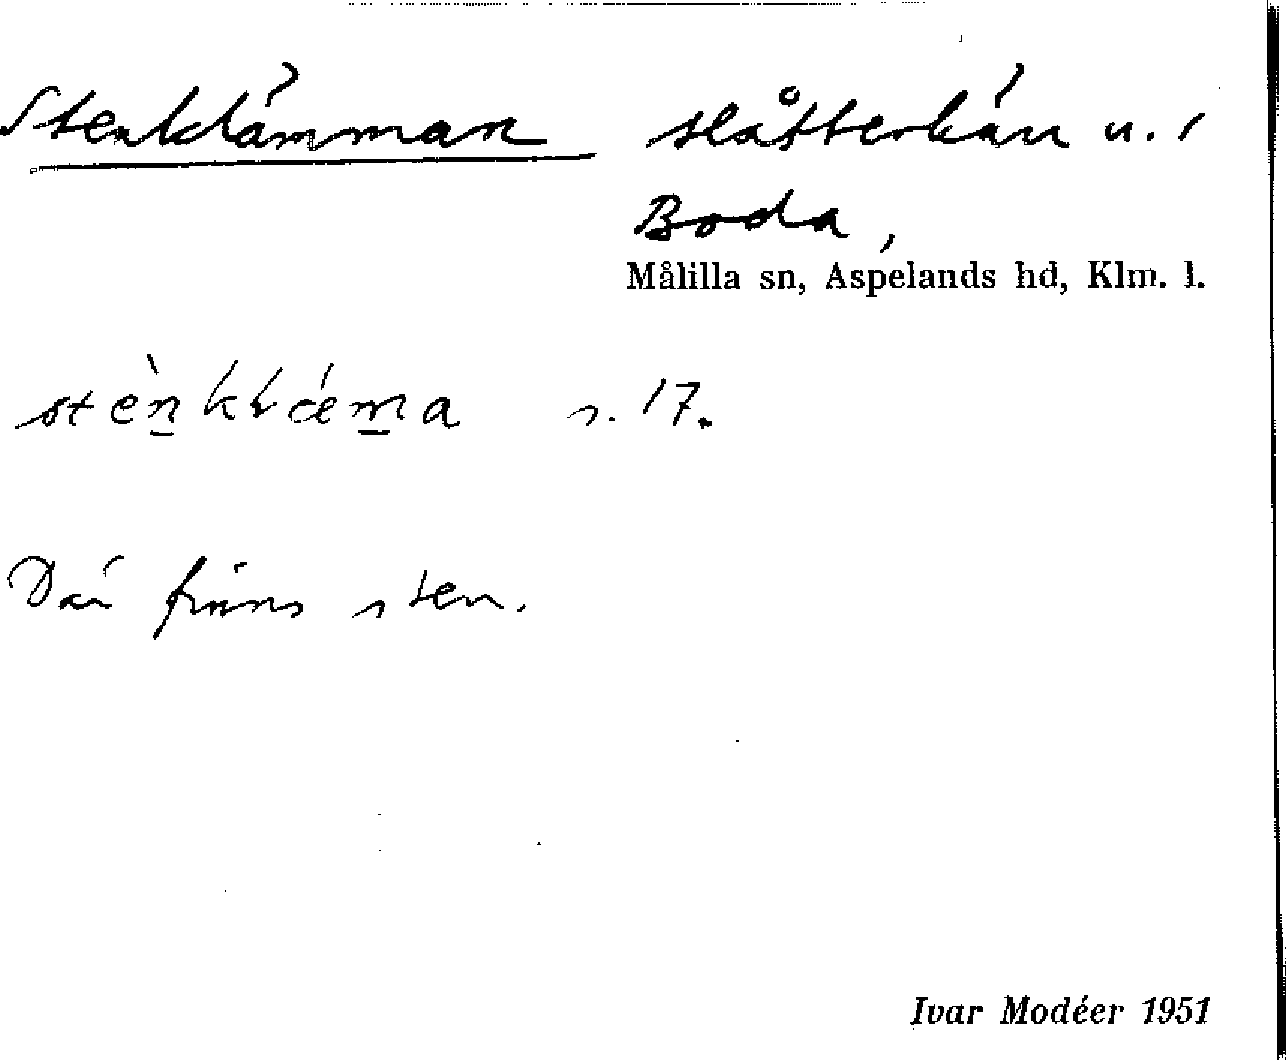 Stenklämman slåtterkärr u. /
Boda,
Målilla sn, Aspelands hd, Klm. l.
stèn̲klæ̀m̲a s. 17.
Där finns sten.
Ivar Modéer 1951